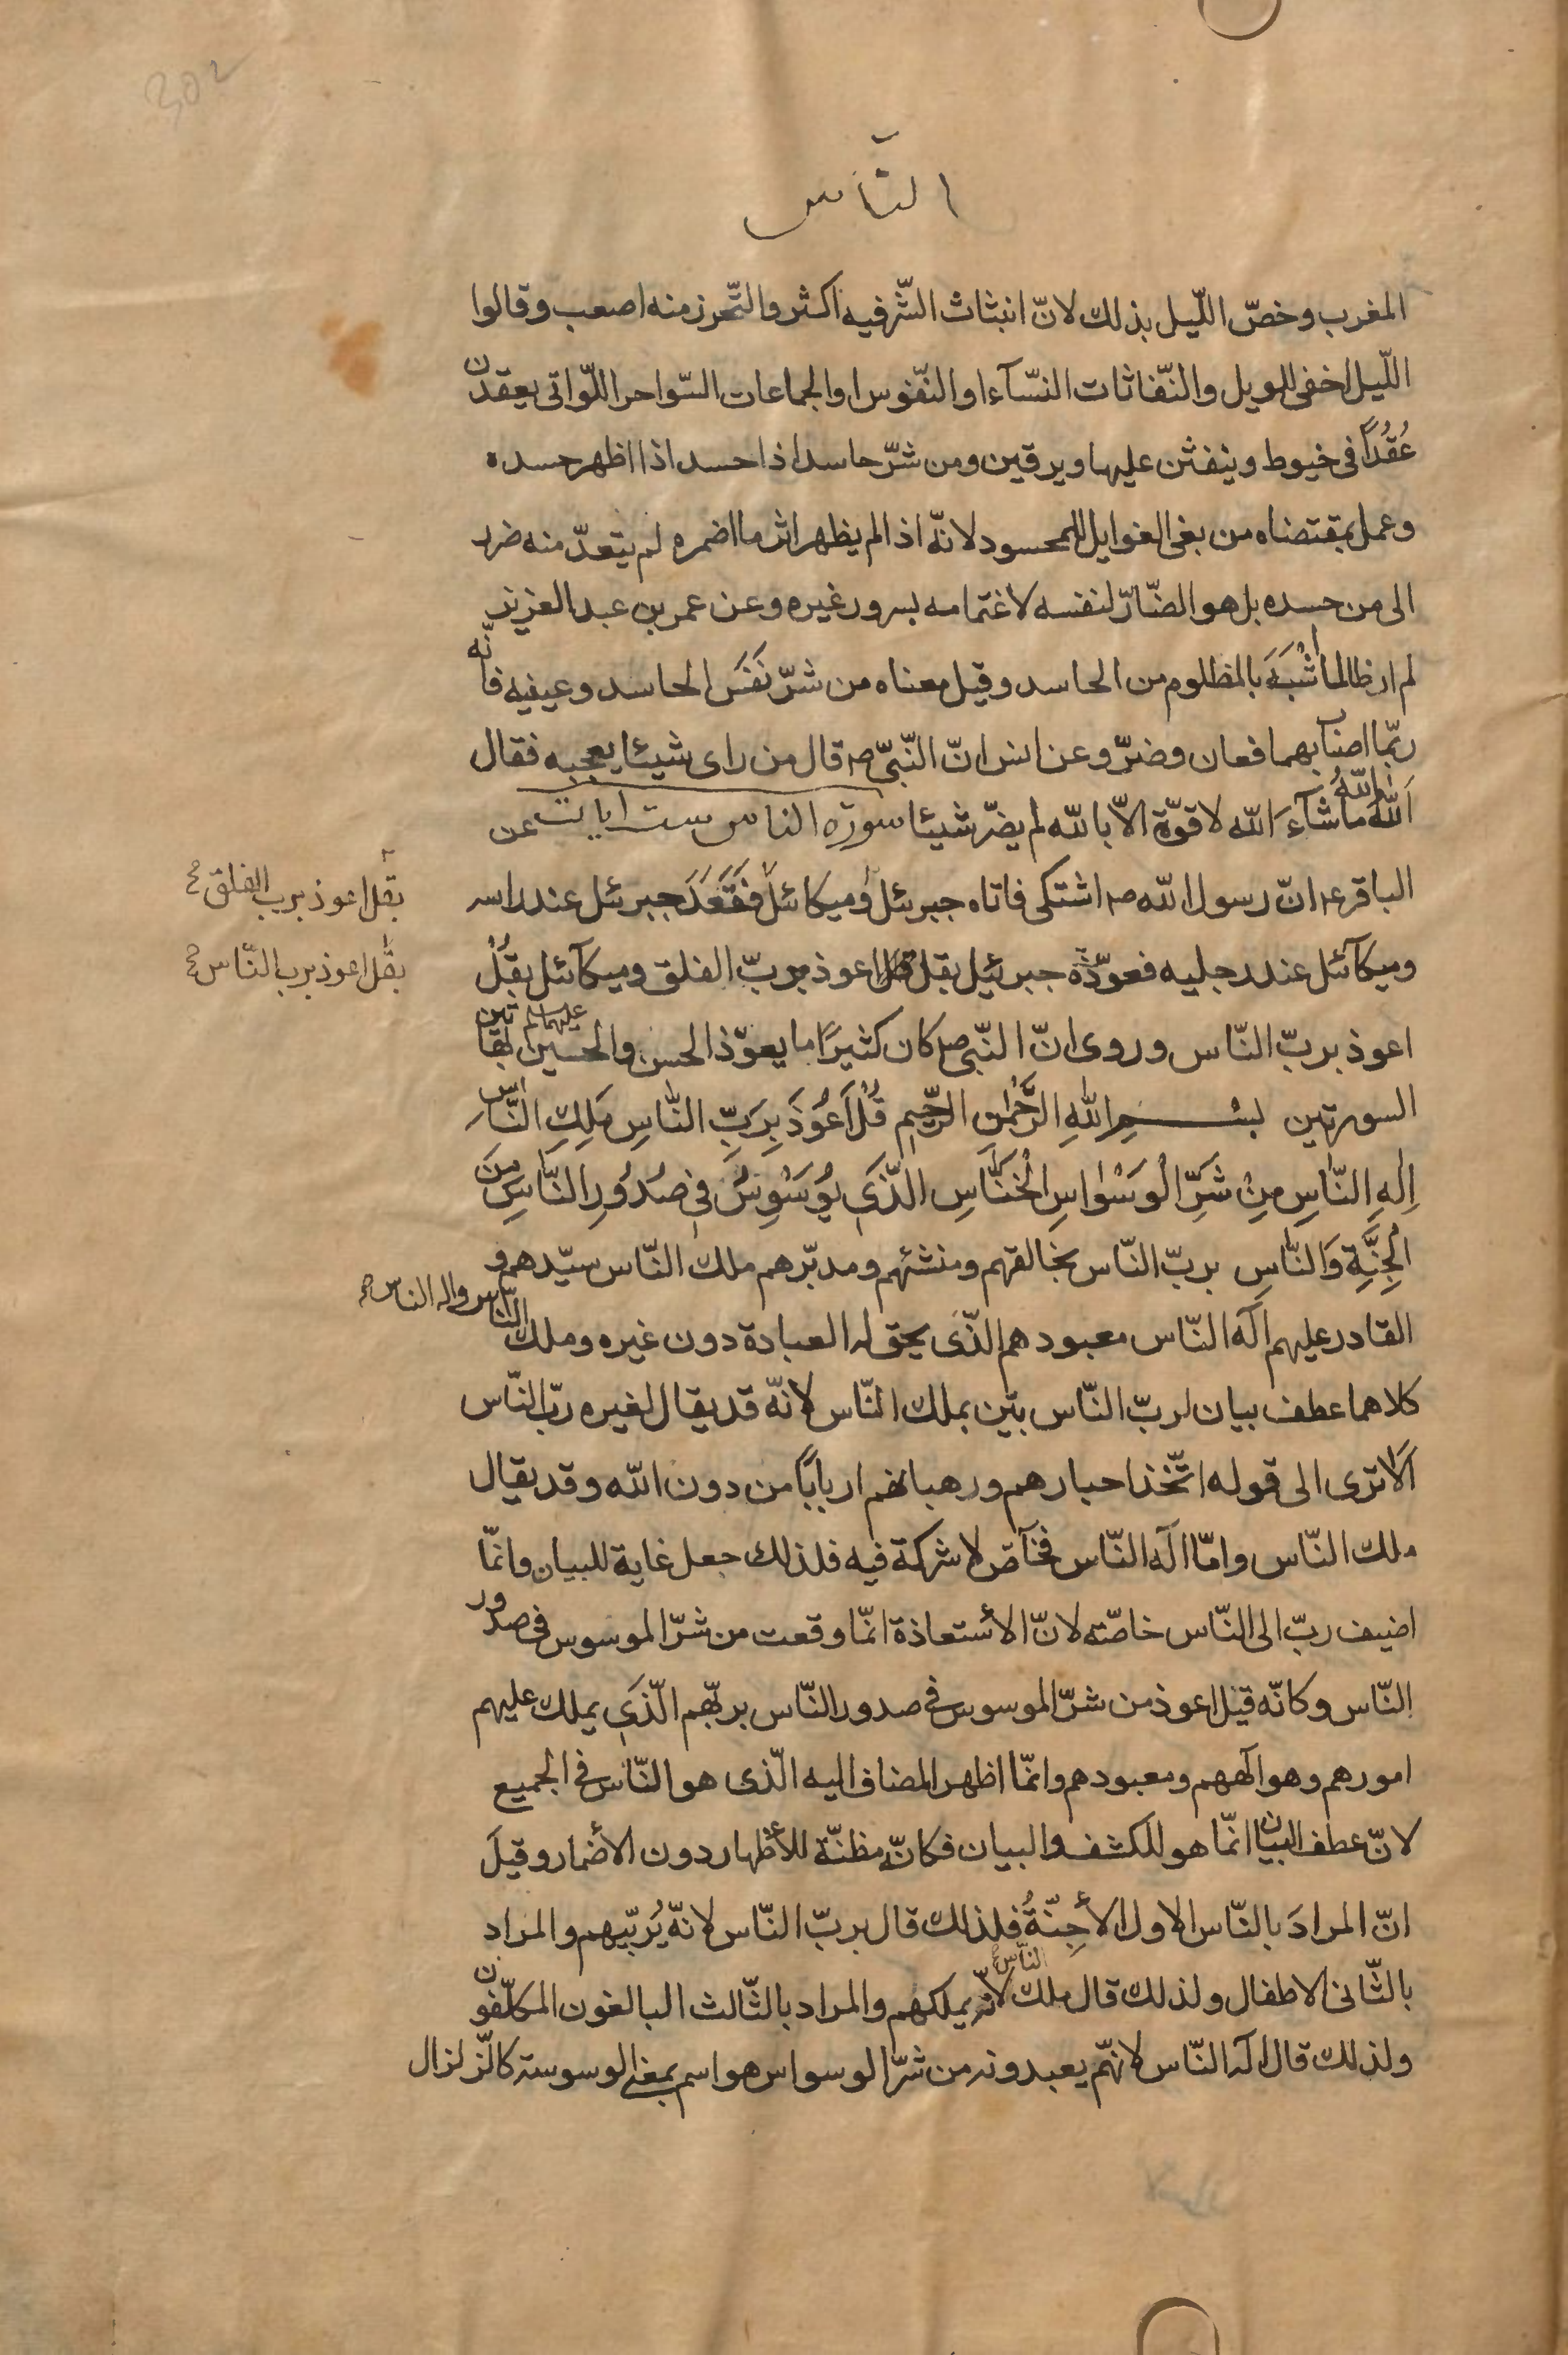 302
النّاس
المغرب وخصّ اللّيل بذلك لانّ انبثاث الشّر فيه اكثر والتّحرز منه اصعب وقالوا
اللّيل اخفى للويل والنّفاثات النسّآء او النّفوس او الجماعات السّواحر اللّواتى يعقدن
عُقُداً فى خيوط وينفثن عليها ويرقين ومن شرّ حاسد اذا حسد اذا اظهر حسده
وعمل بمقتضاه من بغى الغوايل للمحسود لانّه اذا لم يظهر اثر ما اضمره لم يتعدّ منه ضرر
الى من حسده بل هو الضّارّ لنفسه لاغتمامه بسرور غيره وعن عمر بن عبد العزيز
لم ار ظالما اشْبَهَ بالمظلوم من الحاسد وقيل معناه من شرّ نَفَسَ الحاسد وعينيه فانّه
ربّما اصاب بهما فعان وضرّ وعن انس انّ النّبىّ ص قال من راى شيئا يعجبه فقال
اَللّه اللّهُ ماشآءَ اللّه لا قوّة الاّ باللّه لم يضرّ شيئا سورة الناس ست ايات عن
الباقر ع انّ رسول اللّه ص اشتكى فاتاه جبرئل وميكائل فَقَعَدَ جبرئل عند راسه
وميكآئل عند رجليه فعوّذه جبرئيل بقل اعوذ بربّ الفلق وميكآئل بقُلْ
بقل اعوذ برب الفلق
بقل اعوذ برب النّاس
اعوذ بربّ النّاس وروى انّ النّبى ص كان كثيرًا ما يعوّذ الحسن والحسين عليهما بهاتين
السورتين بسْمِ اللّهِ الرَّحْمٰنِ الرَّحِيمِ قُلْ اَعُوْذُ بِرَبِّ النّاسِ مَلِكِ النَّاسِ
اِلٰهِ النّاسِ مِنْ شَرِّ الْوَسْوٰاسِ الْخَنّاسِ الّذى يُوَسْوِسُ فى صُدُورِ النّاسِ مِنَ
الْجِنَّةِ وَالنّاسِ بربّ النّاس بخالقهم ومنشئهم ومدبّرهم ملك النّاس سيّدهم و
القادر عليهم اله النّاس معبودهم الذّى يحق له العبادة دون غيره وملك النّاس واله الناس
كلاهما عطف بيان لربّ النّاس بيّن بملك النّاس لانّه قد يقال لغيره ربّ النّاس
الا ترى الى قوله اتّخذ احبارهم ورهبانهم اربابًا من دون اللّه وقد يقال
ملك النّاس وامّا اله النّاس فخآصّ لا شركة فيه فلذلك جعل غاية للبيان وانّما
اضيف ربّ الى النّاس خاصّته لانّ الأستعاذة انّما وقعت من شرّ الموسوس فى صدور
النّاس وكانّه قيل اعوذ من شرّ الموسوس فى صدور النّاس بربّهم الّذى يملك عليهم
امورهم وهو الههم ومعبودهم وانّما اظهر المضاف اليه الّذى هو النّاس فى الجميع
لانّ عطف البيان انّما هو للكشف والبيان فكانّه مظنّة للأظهار دون الأضمار وقيل
انّ المرادَ بالنّاس الاول الأجِنّةُ فلذلك قال بربّ النّاس لانّه يُربّيهم والمراد
بالثّانى الاطفال ولذلك قال ملك النّاس لانّه يملكهم والمراد بالثّالث البالغون المكلّفون
ولذلك قال اله النّاس لانّهم يعبدونه من شرّ الوسواس هو اسم بمعنى الوسوسة كالزّلزال